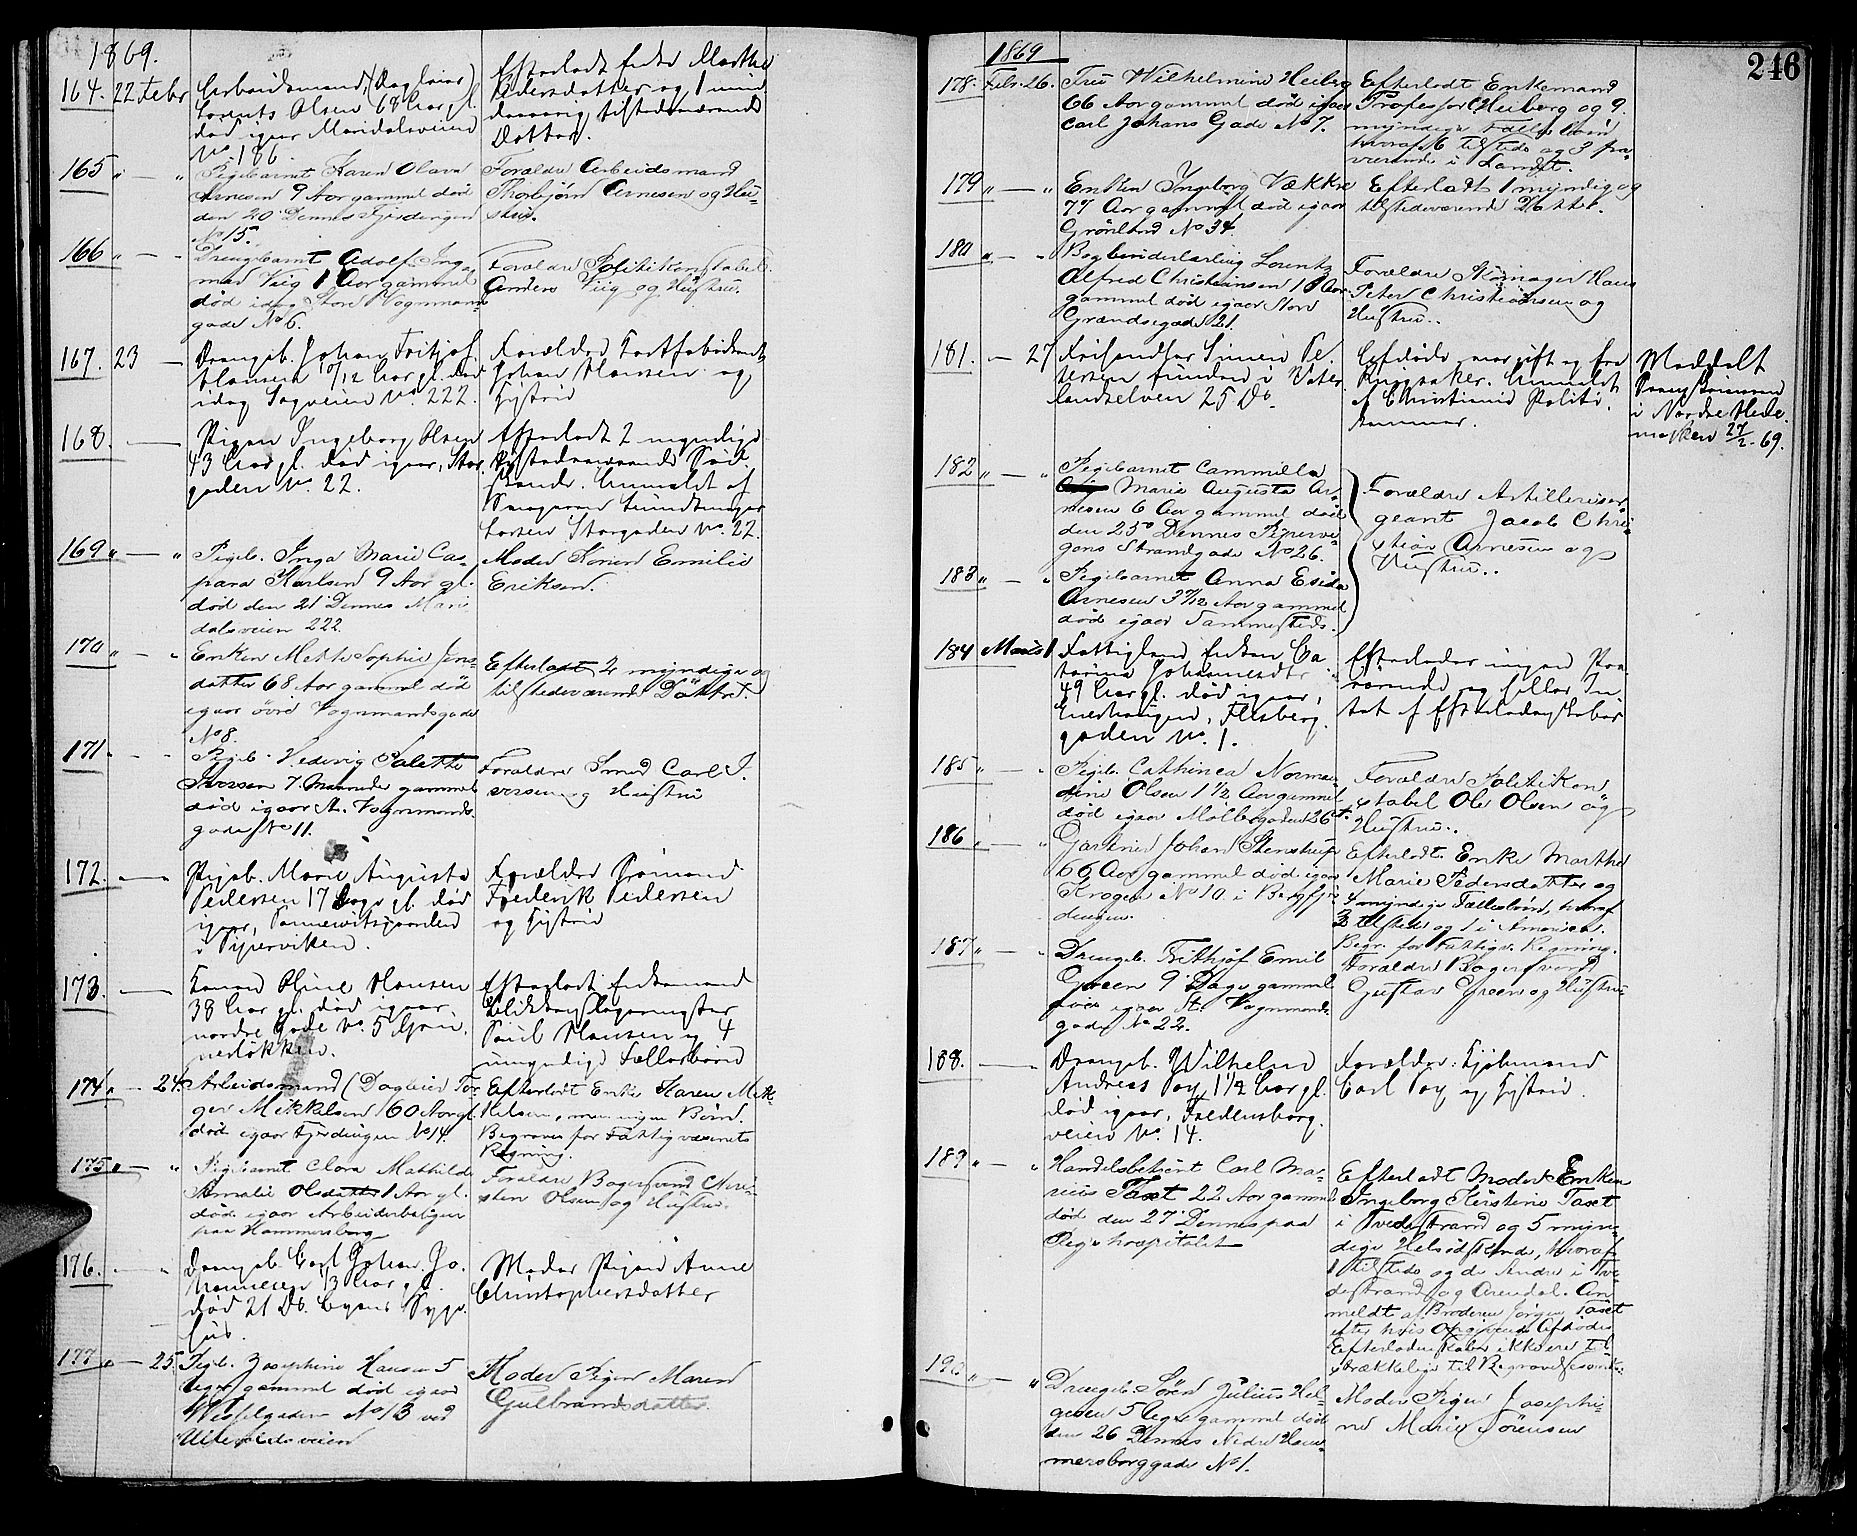 1869.
164. 22 Febr Arbeidsmand (Dagleier)
Lorents Olsen 68 Aar gl.
død igaar Maridalsveien
No 186
Efterladt Enke Marthe
Pedersdatter og 1 
tilstedeværende
Datter.
165 " — " Pigebarnet Karen Olava
Arnesen 9 Aar gammel død
den 20 Dennes Fjerdingen
No 15.
Forældre Arbeidsmand
Thorbjørn Arnesen og Hu-
stru.
166 " — " Drengebarnet Adolf Ing
mar Viig 1 Aar gammel
død idag Store Vognmands
gade No 6.
Forældre Politikonstabel
Anders Viig og Hustru.
167. 23 — Drengeb. Johan Fritjof
Hansen 10/12 Aar gl. død
idag Sagveien No. 222.
Forældre
Johan Hansen og
Hustru
168. — Pigen Ingeborg Olsen
43 Aar gl. død igaar, Stor
gaden No. 22.
Efterladt 2 myndige
tilstedeværende Sød
skende. Anmeldt af
Larsen Storgaden No. 22.
169 " — " Pigeb. Inga Marie Cas-
para Karlsen 9 Aar gl.
død den 21 Dennes Mari
dalsveien 222.
Moder Konen Emilie
Eriksen.
170 " — " Enken Mette Sophie Jens-
datter 68 Aar gammel død
igaar øvre Vognmandsgade
No 8.
Efterladt 2 myndige og
tilstedeværende Døttre.
171 " — " Pigeb. Hedevig Salette
Iversen 7 Maaneder gammel
død igaar St. Vognmands
gade No 11.
Forældre Smed Carl I-
versen og Hustru
172. — Pigeb. Marie Augusta
Pedersen 17 Dage gl. død
igaar,
i Pipervigen.
Forældre Sømand
Frederik Pedersen
og Hustru
173. — Konen Oline Hansen
38 Aar gl. død igaar
nordre Gade No. 5 Grü-
nerløkken.
Efterladt Enkemand
Blikkenslagermester
Paul Hansen og 4
umyndige Fællesbørn
174 " — 24. Arbeidsmand (Dagleier Tor-
ger Mikkelsen 60 Aar gl.
død igaar Fjerdingen No 14.
Efterladt Enke Karen Mik-
kelsen, men ingen Børn.
Begraves for Fattigvæsenets
Regning.
175 " — " Pigebarnet Clara Mathilde
Amalie Olsdatter 1 Aar gl.
død igaar Arbeiderboligen
paa Hammersborg
Forældre Bagersvend Chri-
sten Olsen og Hustru.
176. — " Drengeb. Carl Johan Jo-
hannesen 1/3 Aar gl.
død 21 Ds. Byens Syge
hus.
Moder Pigen Anne
Christophersdatter
177 " — 25. Pigeb. Josephine Hansen 5
Uger gammel død igaar
Wesselgaden No 13 ved
Ullevoldsveien
Moder Pigen Maren
Gulbrandsdatter.
246
1869
178. Febr. 26. Fru Wilhelmine Heiberg
66 Aar gammel død igaar
Carl Johans Gade No 7.
Efterladt Enkemand
Professor Heiberg og 9
myndige Fællesbørn
hvoraf 6 tilstede og 3 fra-
værende i Landet.
179 " — " Enken Ingeborg Vækkre
77 Aar gammel død igaar
Grønland No 34.
Efterladt 1 myndig og
tilstedeværende Datter.
180 " — " Bogbinderlærling Lorentz
Alfred Christiansen 18 Aar
gammel død igaar Store
Grændsegade 21.
Forældre Skomager Hans
Peter Christiansen og
Hustru.
181. — 27 Simen Pe-
tersen funden i Vater
landselven 25 Ds.
Afdøde var gift og fra
Ringsaker. Anmeldt
af Christiania Politi-
kammer.
Meddelt
i Nordre Hede-
marken 27/2-69.
182 " — " Pigebarnet Cammilla
Marie Augusta Ar-
nesen 6 Aar gammel død
den 25de Dennes Pipervi-
gens Strandgade No 26.
Forældre Artilleriser-
geant Jacob Chri-
stian Arnesen og
Hustru.
183 " — " Pigebarnet Anna Elida
Arnesen 3 /12 Aar gammel
død igaar Sammesteds.
184 Marts 1 Fattiglem Enken Ca-
tarina Johannesdtr
49 Aar gl. død igaar,
Enerhaugen, Flisberg-
gaden No. 1.
Efterlader ingen Paa-
rørende og heller In-
tet af Efterladenskaber
185 " — " Pigeb. Cathinca Norman-
dine Olsen 1 1/2 Aar gammel
død igaar Møllergaden 26
Forældre Politikon
stabel Ole Olsen og
Hustru.
186 " — " Gartner Johan Stenstrup
66 Aar gammel død igaar
Krogen No 10 i Bergfjer-
dingen.
Efterladt Enke Marthe
Marie Pedersdatter og
4 myndige Fællesbørn, hvoraf
3 tilstede og 1 i Amerika.
Begr. for Fattigv. Regning.
187 " — " Drengeb. Frithjof Emil
Green 9 Dage gammel
død igaar St. Vognmands
gade No 22.
Forældre Bagersvend
Gustav Green og Hustru
188. — Drengeb. Wilhelm
Andreas Poy 1 1/2 Aar gl.
død igaar, Fredensborg-
veien No. 14.
Forældre: Kjøbmand
Carl Poy og Hustru.
189 " — " Handelsbetjent Carl Ma-
rius Taxt 22 Aar gammel
død den 27 Dennes paa
Rigshospitalet
Efterladt Moder Enken
Ingeborg Kirstine Taxt
i Tvedestrand og 5 myn-
dige Helsødskende, hvoraf
1 tilstede og de Andre i Tve
destrand og Arendal. An
meldt af Broderen Jørgen Taxt
efter hvis Opgivende Afdødes
Efterladenskaber ikke ere til-
strækkelige til Begravelsesomk.
190 " — " Drengeb. Søren Julius Hel-
gesen 5 Uger gammel død
den 26 Dennes Nedre Ham-
mersborggade No 1.
Moder Pigen Josephi-
ne Marie Sørensen